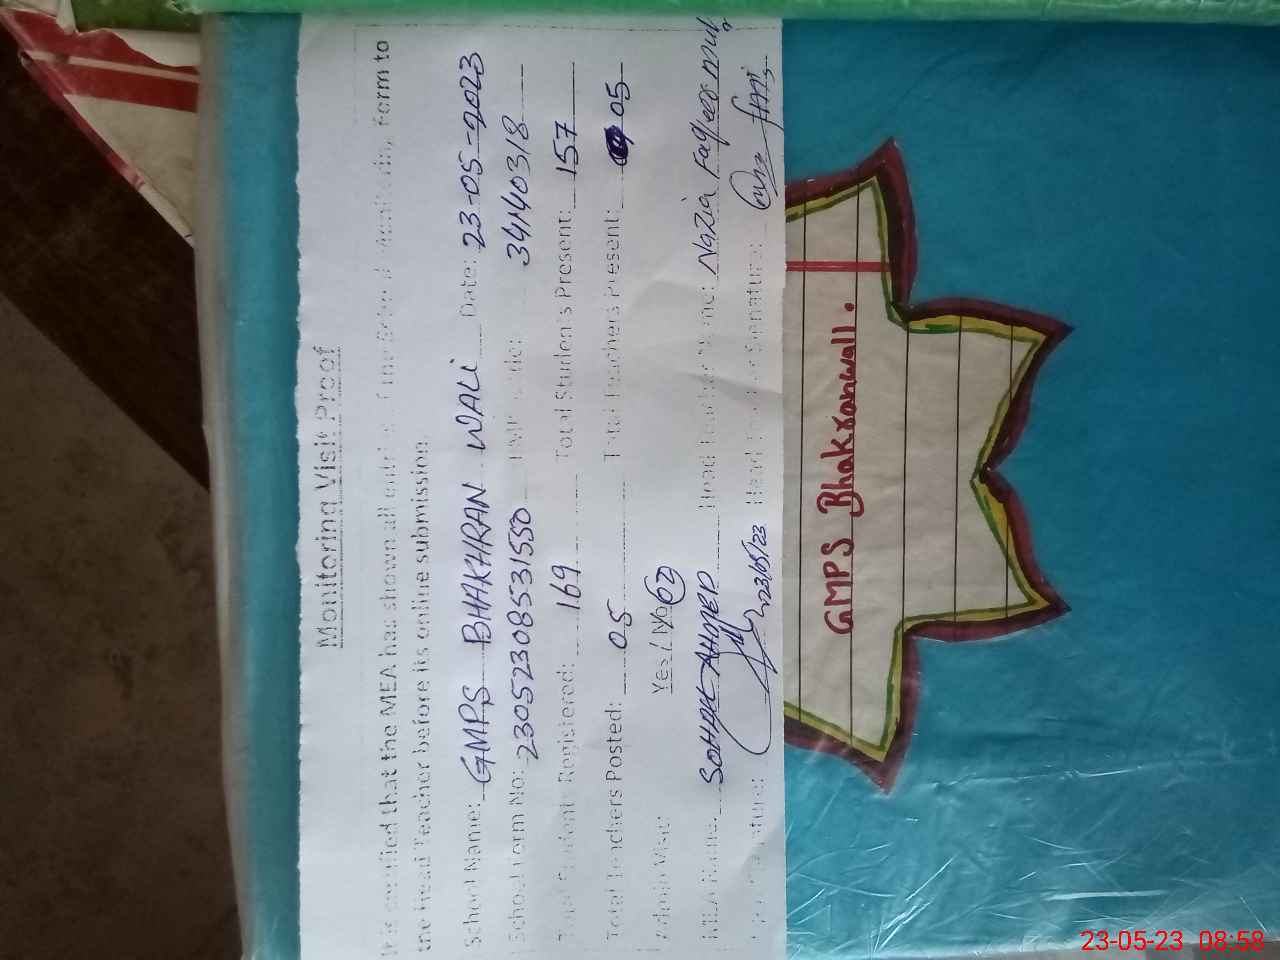 Monitoring Visit Proof
It is certified that the MEA has shown all of the Monitoring Form to
the Head Teacher before its online submission.
School Name: GMPS BHAKHRAN WALI Date: 23-05-2023
School Form No: 23052308531550 Code: 34140318
Total Students Registered: 169 Total Students Present: 157
Total Teachers Posted: 05 Total Teachers Present: 05
Visit: Yes / No 02
MEA Name: SOHAIL AHMED Head Teacher Name: Nazia
Signature: 23/05/23 Head Teacher Signature:
GMPS Bhakranwali.
23-05-23 08:58